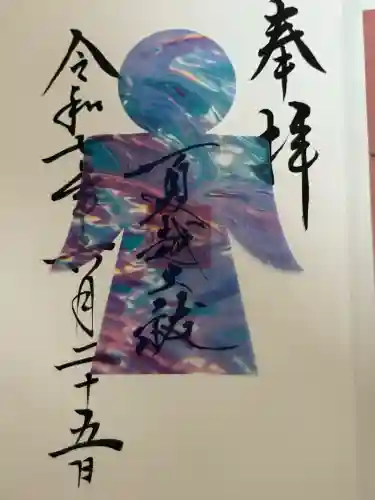 奉拝
夏越大祓
令和六年六月二十五日